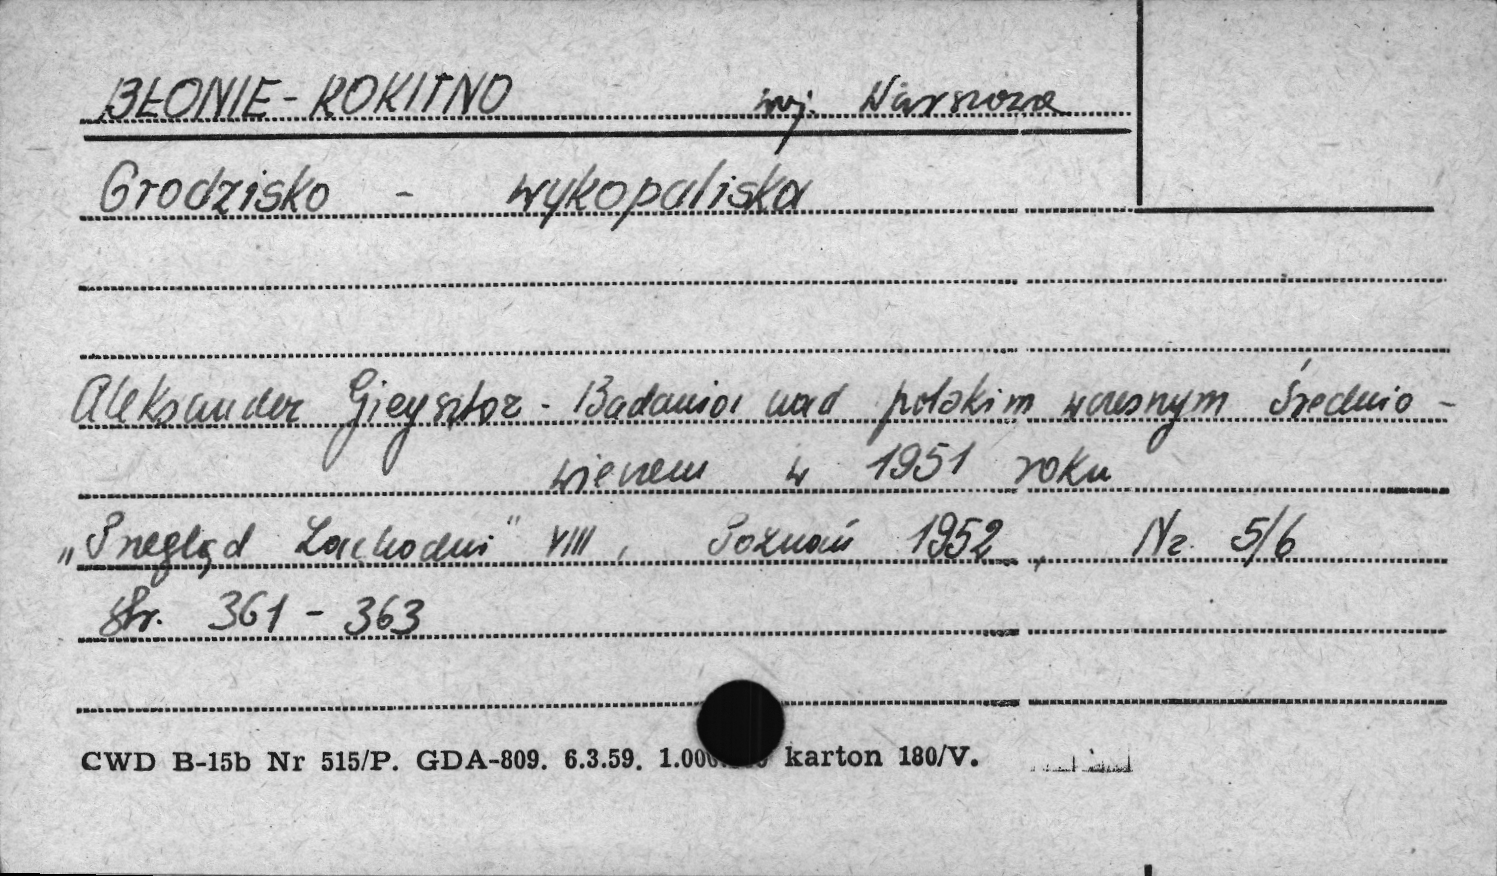 BŁONIE - ROKITNO woj. Warszawa
Grodzisko - wykopaliska
Aleksander Gieysztor - Badania nad polskim wczesnym średnio -
wieczem w 1951 roku
„Przegląd Zachodni" VIII, Poznań 1952, Nr. 5/6
str. 361 - 363
CWD B-15b Nr 515/P. GDA-809. 6.3.59. karton 180/V.